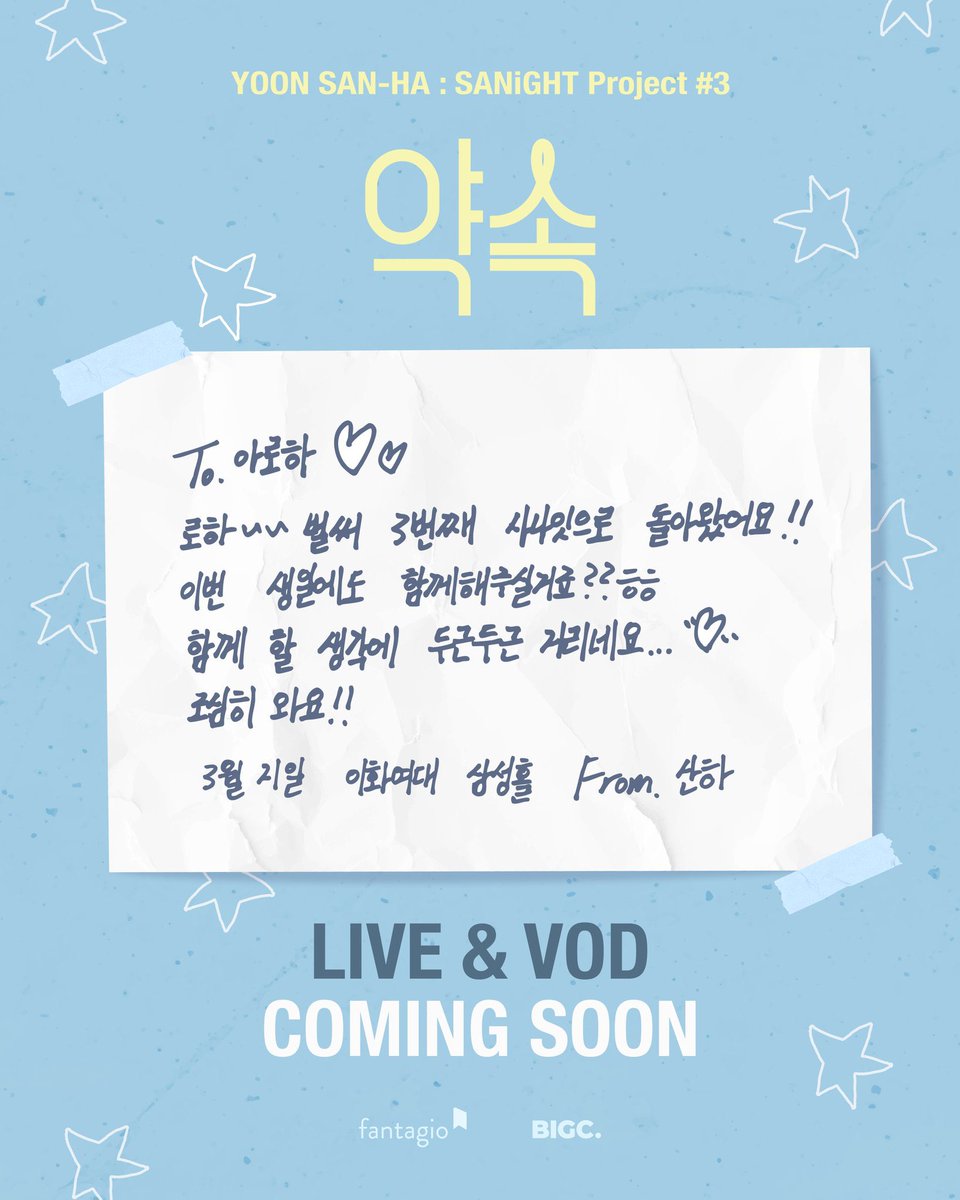 YOON SAN-HA : SANiGHT Project #3
약속
To. 아로하 ♡♡
로하~~ 벌써 3번째 사나잇으로 돌아왔어요!!
이번 생일에도 함께해주실거죠??ㅎㅎ
함께 할 생각에 두근두근 거리네요... ♡
조심히 와요!!
3월 21일 이화여대 삼성홀 From. 산하
LIVE & VOD
COMING SOON
fantagio
BIGC.